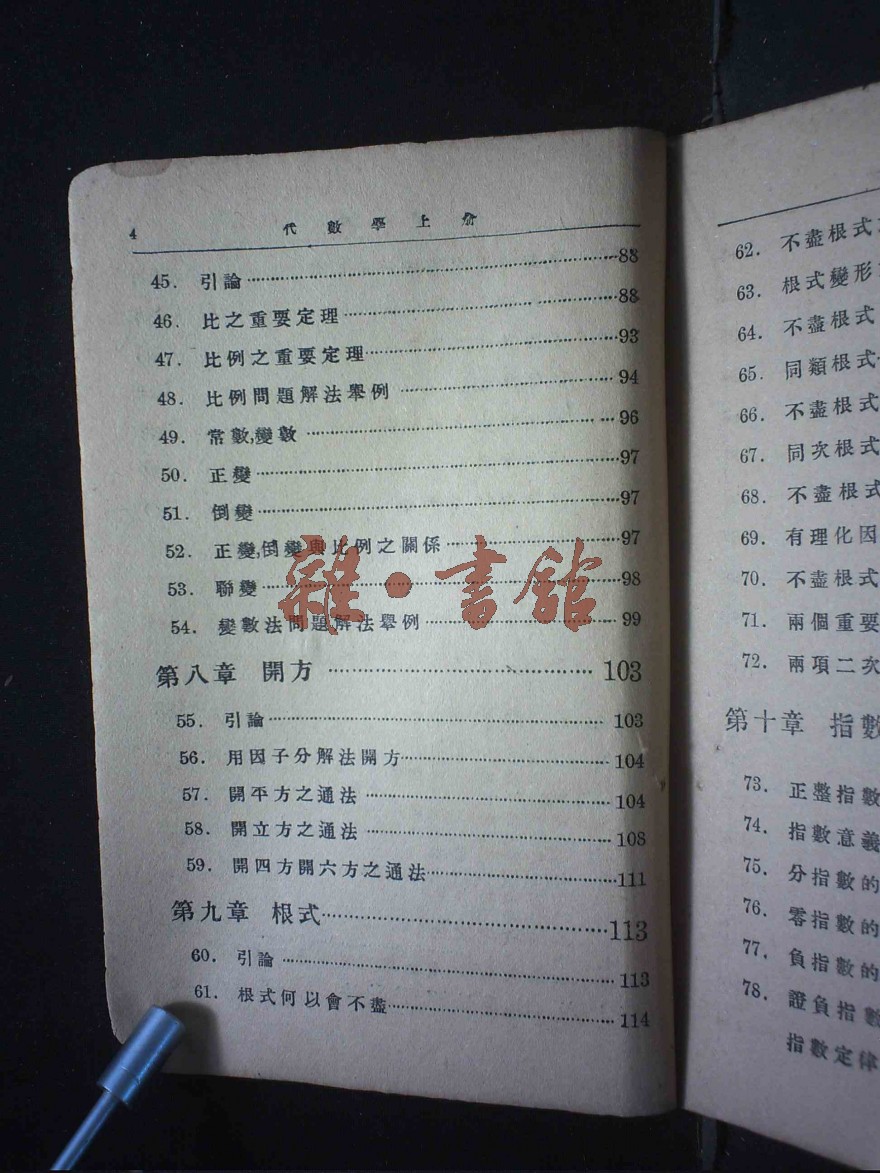 4 代數學上册
45. 引論……88
46. 比之重要定理……88
47. 比例之重要定理……93
48. 比例問題解法舉例……94
49. 常數,變數……96
50. 正變……97
51. 倒變……97
52. 正變,倒變與比例之關係……97
53. 聯變……98
54. 變數法問題解法舉例……99
第八章 開方……103
55. 引論……103
56. 用因子分解法開方……104
57. 開平方之通法……104
58. 開立方之通法……108
59. 開四方開六方之通法……111
第九章 根式……113
60. 引論……113
61. 根式何以會不盡……114
雜·書館
62. 不盡根式
63. 根式變形
64. 不盡根式
65. 同類根式
66. 不盡根式
67. 同次根式
68. 不盡根式
69. 有理化因
70. 不盡根式
71. 兩個重要
72. 兩項二次
第十章 指數
73. 正整指數
74. 指數意義
75. 分指數的
76. 零指數的
77. 負指數的
78. 證負指數
指數定律